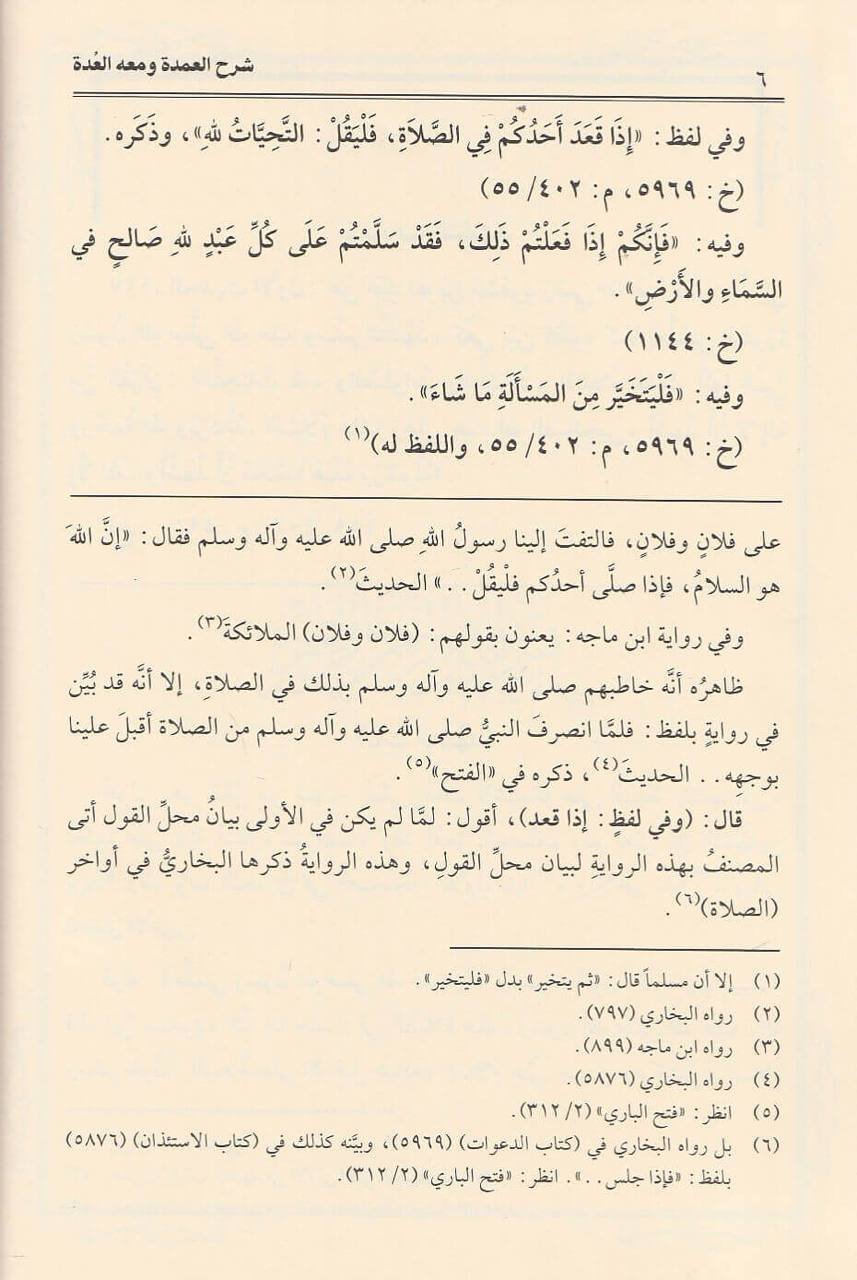 ٦
شرح العمدة ومعه العُدة
وفي لفظ: «إِذَا قَعَدَ أَحَدُكُمْ فِي الصَّلاَةِ، فَلْيَقُلْ: التَّحِيَّاتُ للهِ»، وذَكَره.
(خ: ٥٩٦٩، م: ٤٠٢/ ٥٥)
وفيه: «فَإِنَّكُمْ إِذَا فَعَلْتُمْ ذَلِكَ، فَقَدْ سَلَّمْتُمْ عَلَى كُلِّ عَبْدٍ للهِ صَالحٍ في
السَّمَاءِ والأَرْضِ».
(خ: ١١٤٤)
وفيه: «فَلْيَتَخَيَّر مِنَ المَسْأَلَةِ مَا شَاءَ».
(خ: ٥٩٦٩، م: ٤٠٢/ ٥٥، واللفظ له)(١)
على فلانٍ وفلانٍ، فالتفتَ إلينا رسولُ اللهِ صلى الله عليه وآله وسلم فقال: «إنَّ اللهَ
هو السلامُ، فإذا صلَّى أحدُكم فلْيقُلْ..» الحديثَ(٢).
وفي رواية ابن ماجه: يعنون بقولهم: (فلان وفلان) الملائكةَ(٣).
ظاهرُه أنَّه خاطبهم صلى الله عليه وآله وسلم بذلك في الصلاةِ، إلا أنَّه قد بُيِّن
في روايةٍ بلفظ: فلمَّا انصرفَ النبيُّ صلى الله عليه وآله وسلم من الصلاة أقبلَ علينا
بوجهِه.. الحديثَ(٤)، ذكره في «الفتح»(٥).
قال: (وفي لفظٍ: إذا قعد)، أقول: لمَّا لم يكن في الأولى بيانُ محلِّ القول أتى
المصنفُ بهذه الروايةِ لبيان محلِّ القولِ، وهذه الروايةُ ذكرها البخاريُّ في أواخر
(الصلاة)(٦).
(١) إلا أن مسلماً قال: «ثم يتخير» بدل «فليتخير».
(٢) رواه البخاري (٧٩٧).
(٣) رواه ابن ماجه (٨٩٩).
(٤) رواه البخاري (٥٨٧٦).
(٥) انظر: «فتح الباري» (٢/ ٣١٢).
(٦) بل رواه البخاري في (كتاب الدعوات) (٥٩٦٩)، وبيَّنه كذلك في (كتاب الاستئذان) (٥٨٧٦)
بلفظ: «فإذا جلس..». انظر: «فتح الباري» (٢/ ٣١٢).